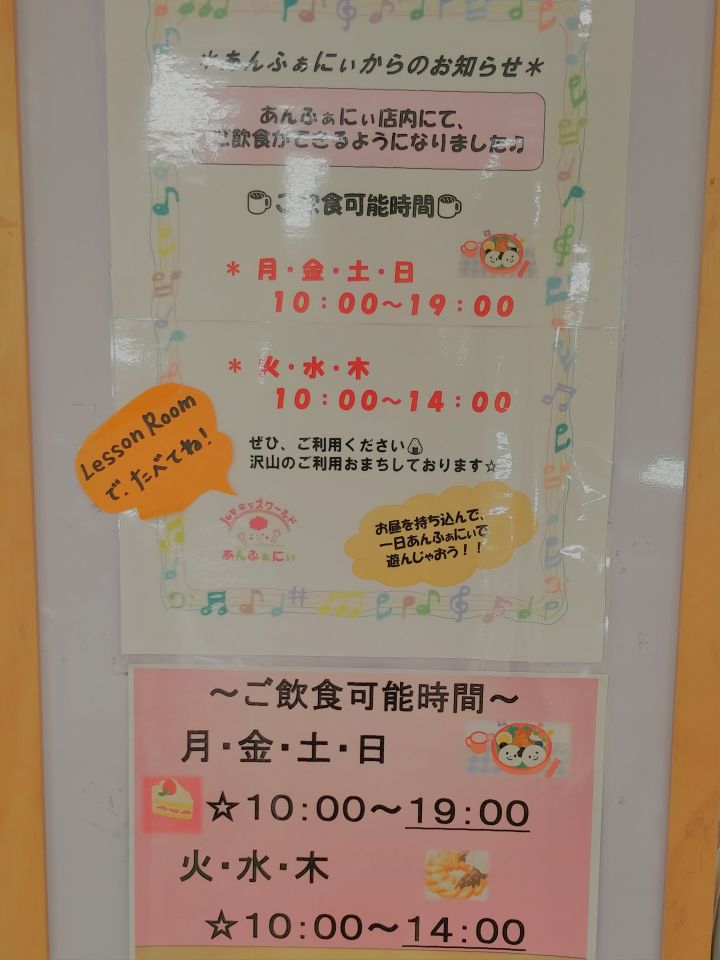 ＊あんふぁにぃからのお知らせ＊
あんふぁにぃ店内にて、
ご飲食ができるようになりました♫
ご飲食可能時間
＊ 月・金・土・日
10：00～19：00
＊ 火・水・木
10：00～14：00
Lesson Room
で、たべてね！
ぜひ、ご利用ください🍙
沢山のご利用おまちしております☆
キッズワールド
あんふぁにぃ
お昼を持ち込んで、
一日あんふぁにぃで
遊んじゃおう！！
～ご飲食可能時間～
月・金・土・日
☆10：00～19：00
火・水・木
☆10：00～14：00